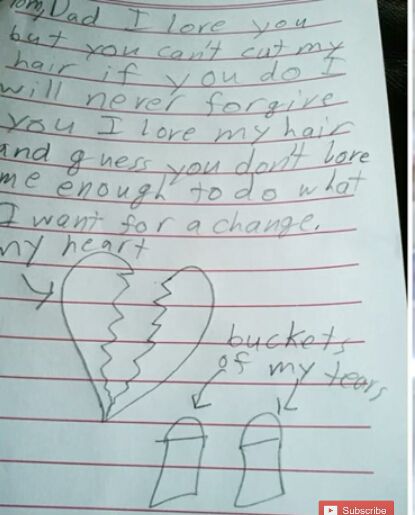 Mom, Dad I love you
but you can't cut my
hair if you do I
will never forgive
you I love my hair
and guess you don't love
me enough to do what
I want for a change.
my heart
buckets
of my tears
Subscribe